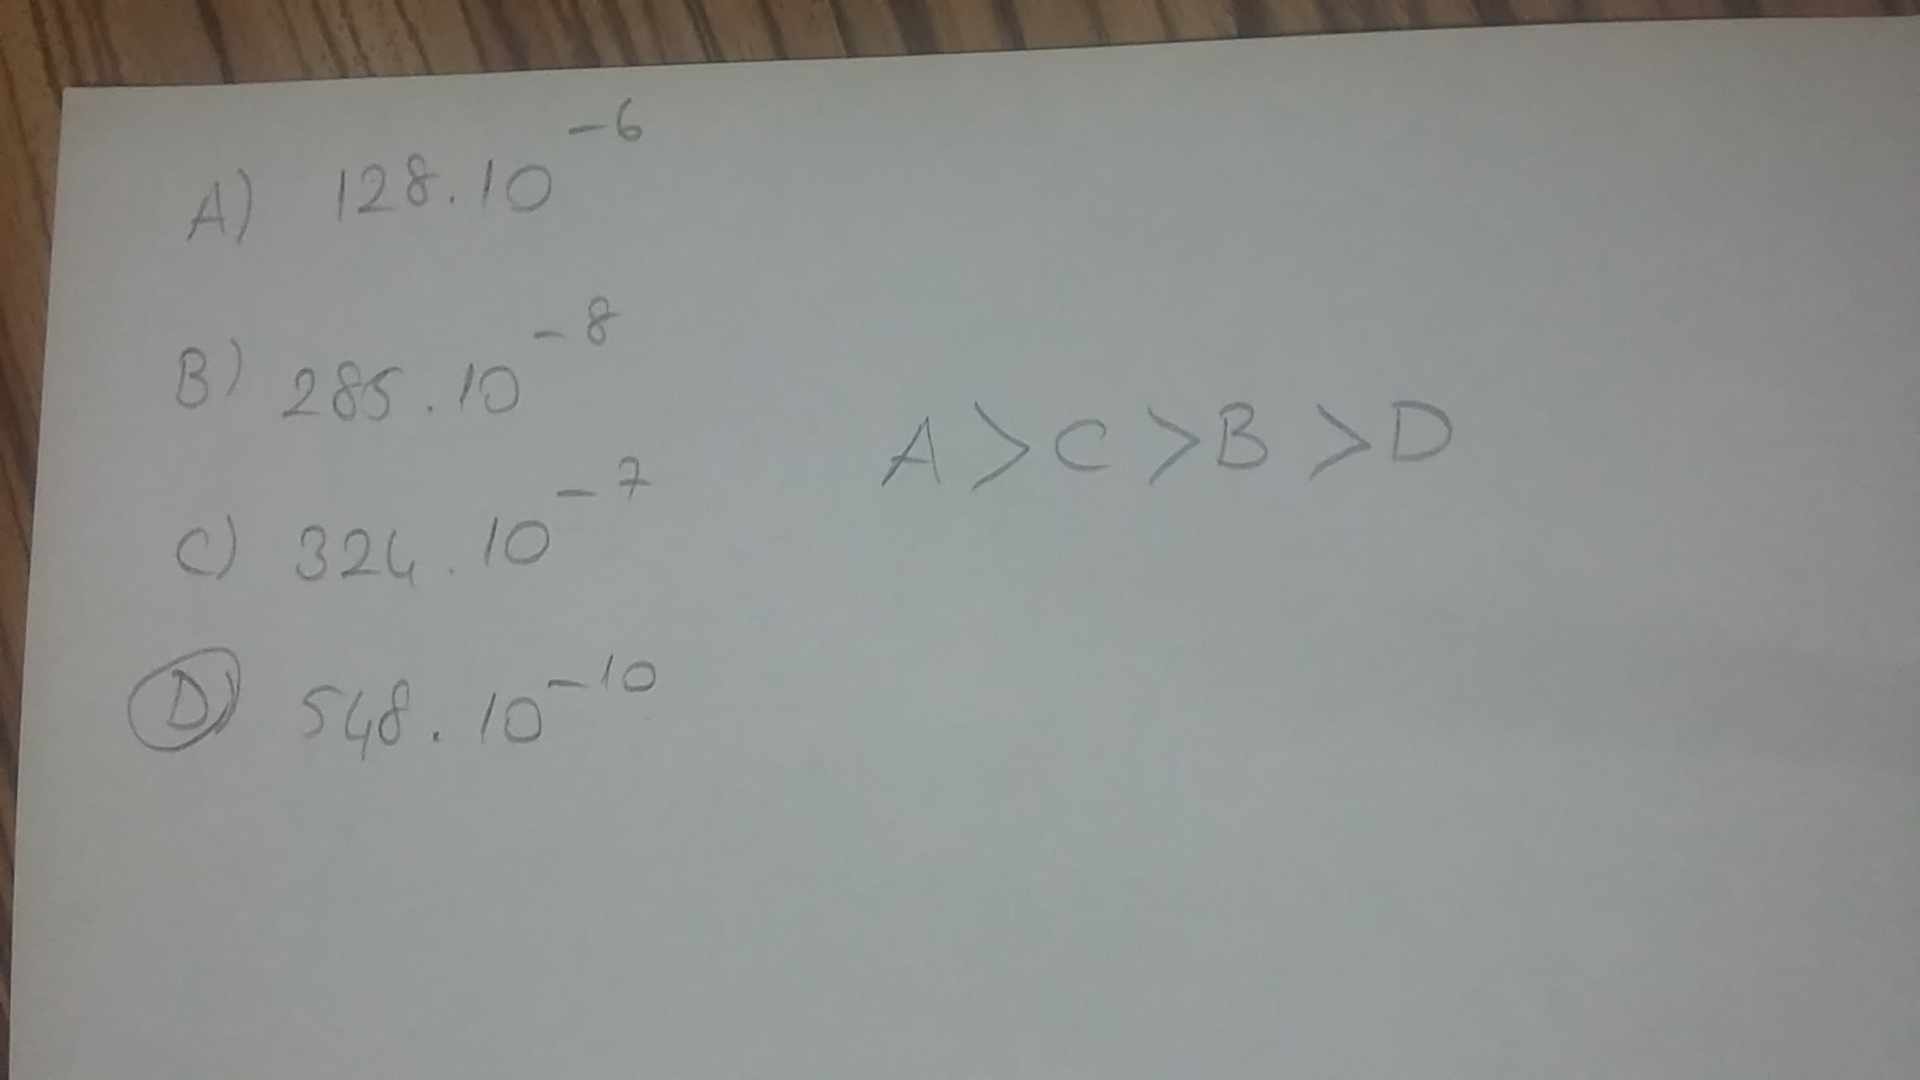 A) 128.10⁻⁶
B) 285.10⁻⁸
C) 324.10⁻⁷
D) 548.10⁻¹⁰
A>C>B>D